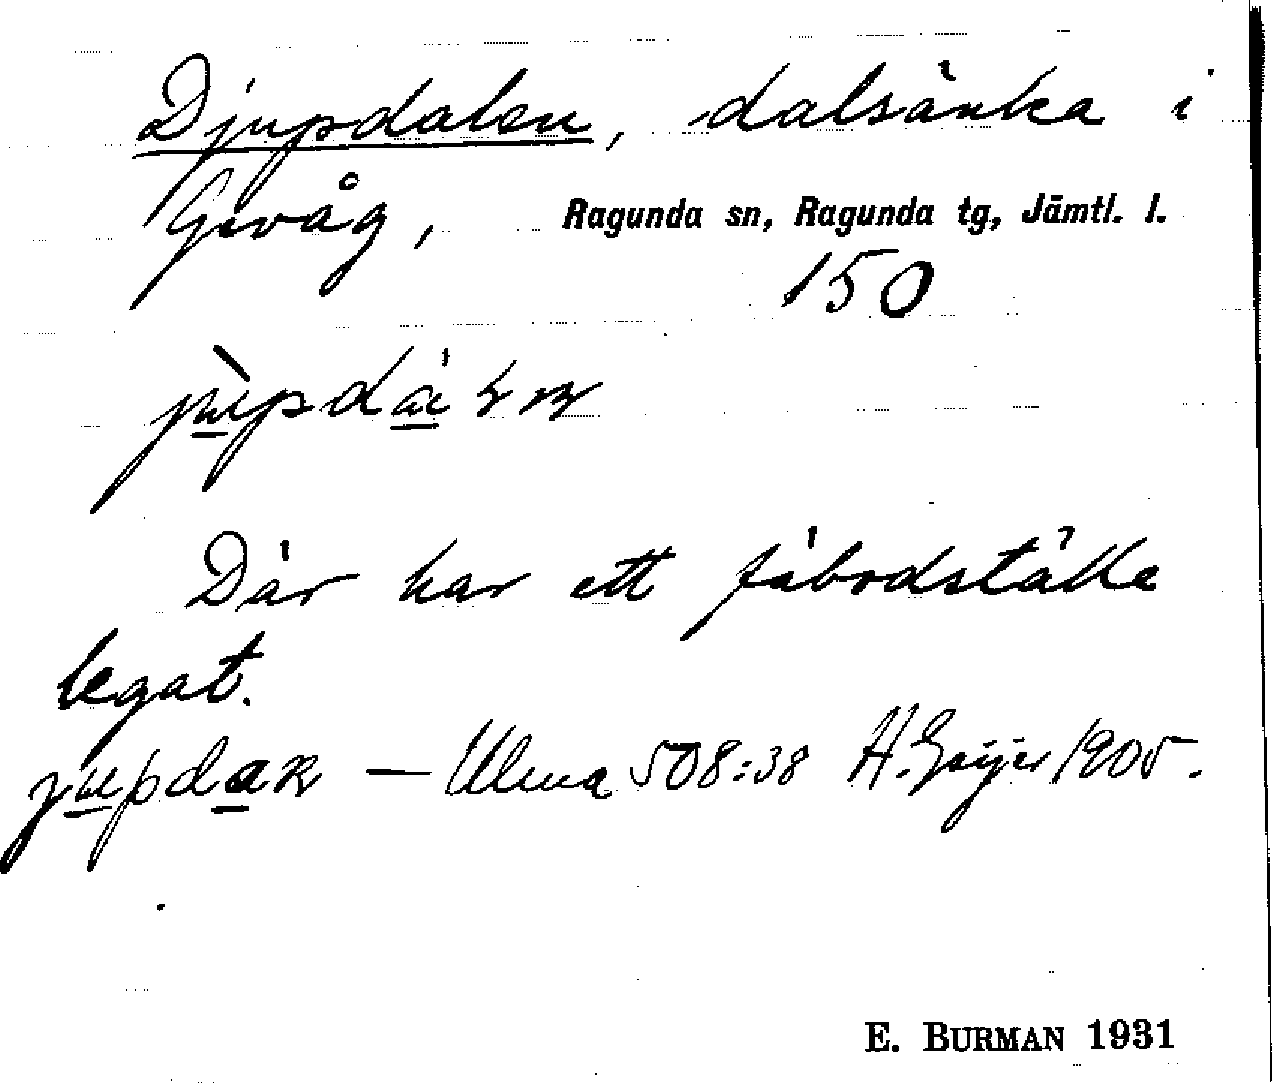 Djupdalen, dalsänka i
Gevåg, Ragunda sn, Ragunda tg, Jämtl. l.
150
Där har ett fäbodställe
legat.
— Ulma 508:38 H. Geijer 1905.
E. BURMAN 1931